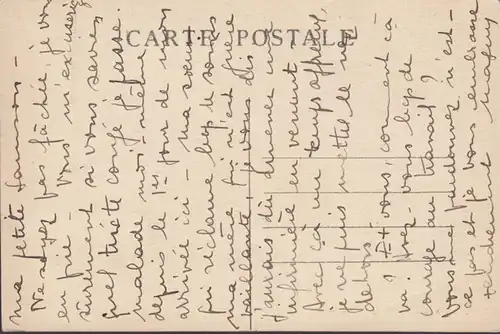 CARTE POSTALE
ma petite
Ne soyez pas fâchée, je vous
en prie - Vous m'excuserez
sûrement si vous saviez
quel triste congé je passe.
malade moi-même
depuis le 1er jour de mon
arrivée ici - ma soeur
qui réclame bcp de soins
ma mère qui n'est guère
vaillante je vous dis
j'aurais dû amener une
infirmière en venant
Avec ça un temps affreux,
je ne puis mettre le nez
dehors
? Et vous, comment ça
va? Avez-vous bcp de
courage au travail?
Vous me pardonnez n'est-
ce pas et je vous embrasse
tendrement